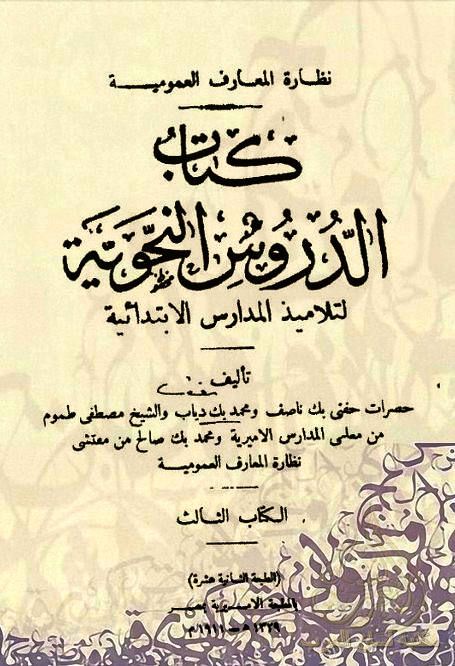 نظارة المعارف العمومية
كتاب
الدروس النحوية
لتلاميذ المدارس الابتدائية
تأليف
حضرات حفنى بك ناصف ومحمد بك دياب والشيخ مصطفى طموم
من معلمى المدارس الاميرية ومحمد بك صالح من مفتشى
نظارة المعارف العمومية
الكتاب الثالث
(الطبعة الثانية عشرة)
بالمطبعة الاميرية بمصر
١٣٢٩ هـ - ١٩١١ م